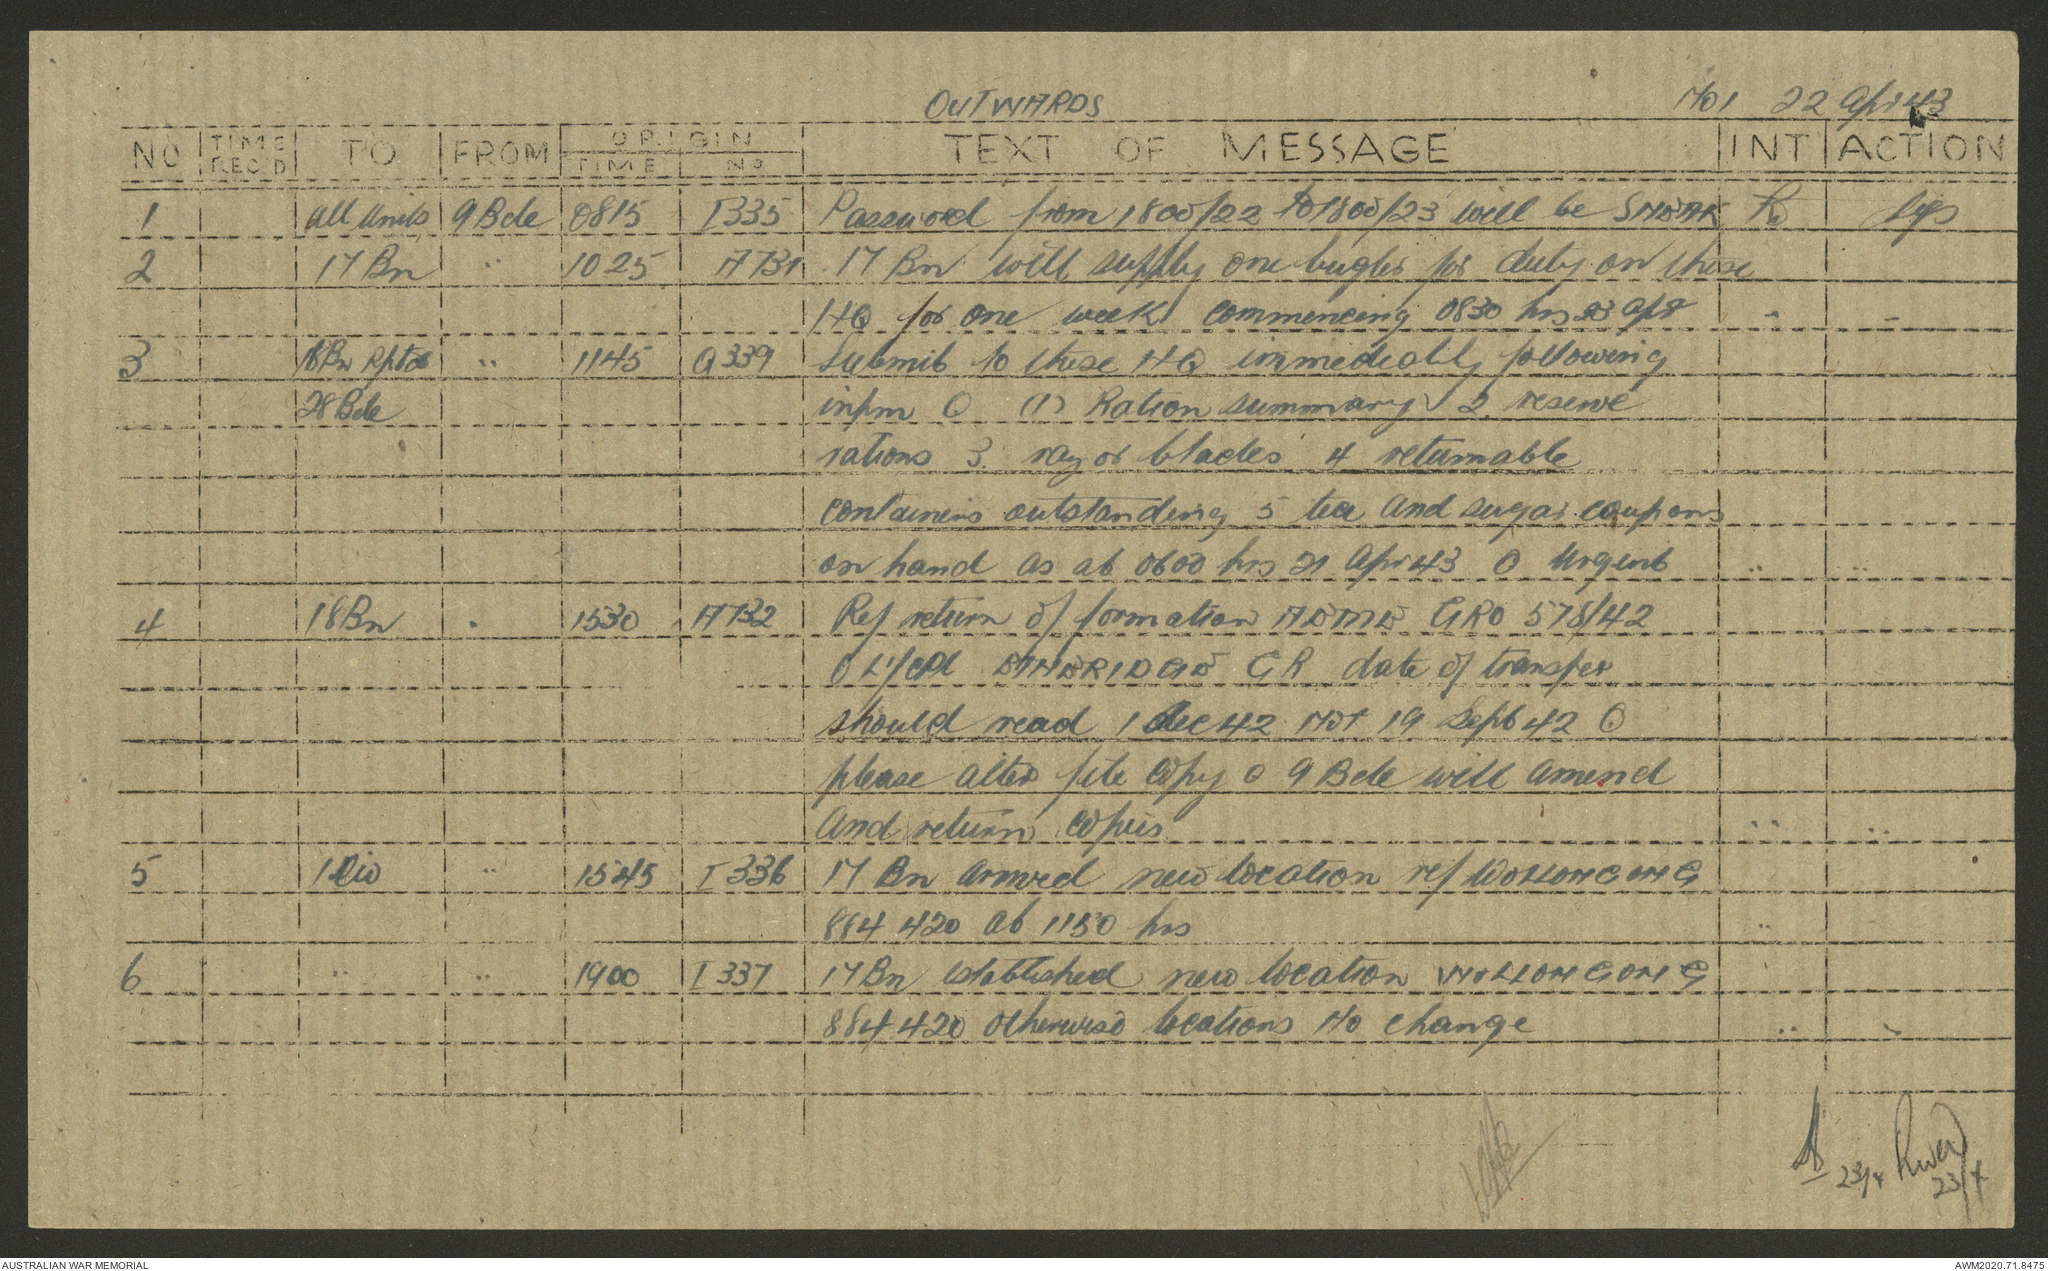 OUTWARDS No 1 22 Apr 43
NO TIME REC'D TO FROM ORIGIN TIME No TEXT OF MESSAGE INT ACTION
1 All Units 9 Bde 0815 I335 Password from 1800/22 to 1800/23 will be SNEAK sgs
2 17 Bn " 1025 A731 17 Bn will supply one bugler for duty on these
HQ for one week commencing 0830 hrs 23 Apr " -
3 18Bn Rptd " 1145 Q339 Submit to these HQ immediatly following
28 Bde infm O (1) Ration summary 2 reserve
rations 3. razor blades 4 returnable
containers outstanding 5 tea and sugar coupons
on hand as at 0600 hrs 21 Apr 43 O Urgent " "
4 18 Bn " 1530 A732 Ref return of formation GRO 578/42
O L/Cpl ETHERIDGE G R date of transfer
should read 1 Dec 42 not 19 Sept 42 O
please alter file copy O 9 Bde will amend
and return copies " "
5 1 Div " 1545 I336 17 Bn arrived new location ref WOLLONGONG
884420 at 1150 hrs "
6 " " 1900 I337 17 Bn established new location WOLLONGONG
884420 otherwise locations no change " "
23/4
23/4
AUSTRALIAN WAR MEMORIAL AWM2020.71.8475